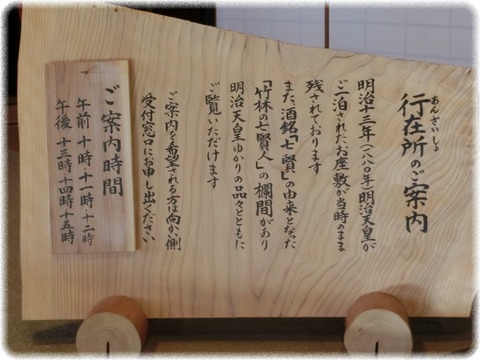 あんざいしょ
行在所のご案内
明治十三年(一八八〇年)明治天皇が
ご一泊されたお座敷が当時のまま
残されております
また、酒銘「七賢」の由来となった
「竹林の七賢人」の欄間があり
明治天皇ゆかりの品々とともに
ご覧いただけます
ご案内を希望される方は向かい側
受付窓口にお申し出ください
ご案内時間
午前 十時 十一時 十二時
午後 十三時 十四時 十五時